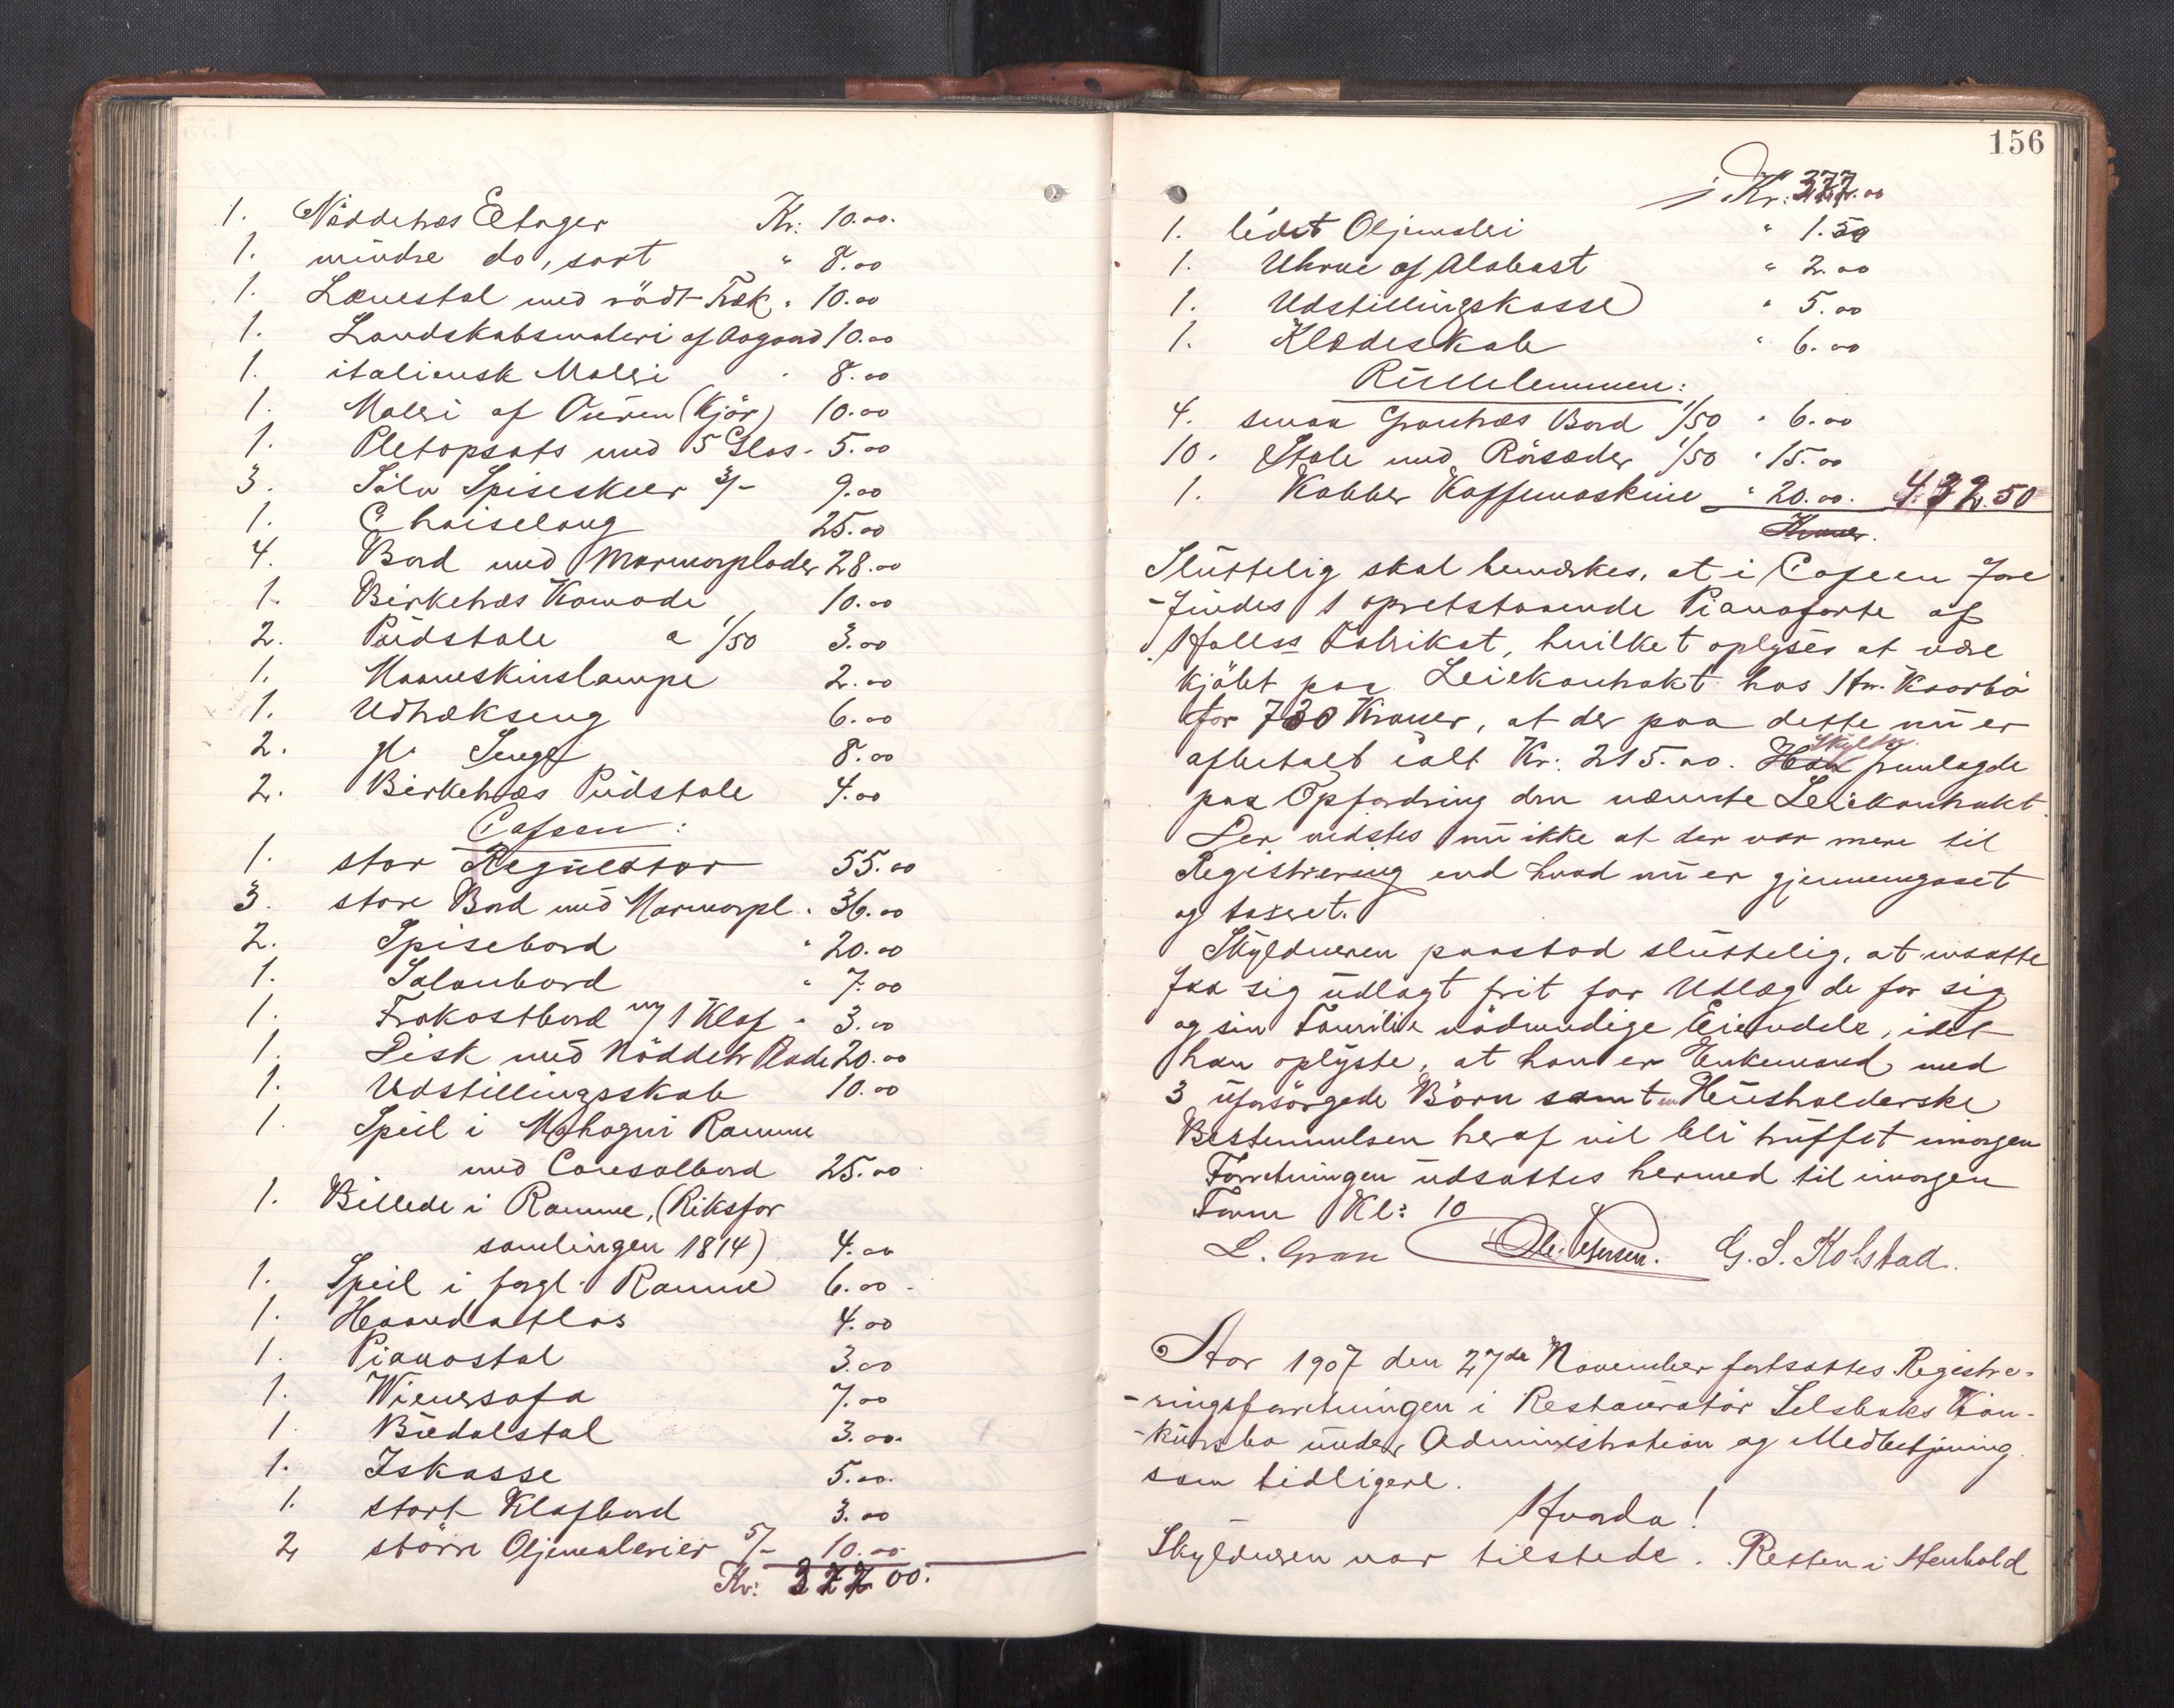 1. Nöddetræs Etager Kr: 10.00.
1. mindre do, sort " 8.00
1. Lænestol med rödt Træk " 10.00
1. Landskabsmaleri af Aagaard 10.00
1. italiensk Maleri " 8.00
1. Maleri af Ouren (Kjör) 10.00
1. Pletopsats med 5 Glas " 5.00
3. Sölv Spiseskeer 3/- 9.00
1. Chaiselong 25.00
4. Bord med Marmorplader 28.00
1. Birketræs Komode 10.00
2. Pudstole a 1/50 3.00
1. Maaneskinslampe 2.00
1. Udtrækseng 6.00
2. gl. Senge 8.00
2. Birketræs Pudstole 4.00
Cafeen:
1. stor Regulator 55.00
3. store Bord med Marmorpl. " 36.00
2. Spisebord " 20.00
1. Salonbord " 7.00
1. Frokostbord m/ 1 Klaf " 3.00
1. Disk med Nöddetr Plade 20.00
1. Udstillingsskab 10.00
1. Speil i Mahogni Ramme
med Consolbord 25.00
1. Billede i Ramme, (Riksfor
samlingen 1814) 4.00
1. Speil i forgl. Ramme 6.00
1. Haandatlas 4.00
1. Pianostol 3.00
1. Wienersofa 7.00
1. 3.00
1. Iskasse 5.00
1. stort Klafbord 3.00
2 större Oljemalerier 5/- 10.00
Kr: 377 00.
156
Kr: 377.00
1. lidet Oljemaleri " 1.50
1. Uhrne af Alabast " 2.00
1. Udstillingskasse " 5.00
1. Klædeskab " 6.00
Rullelemmen:
4. smaa Grantræs Bord 1/50 " 6.00
10. Stole med Rörsæder 1/50 " 15.00
1. Kobber Kaffemaskine " 20.00. 432.50
Kroner.
Sluttelig skal bemærkes, at i Cafeen fore
-findes 1 opretstaaende Pianoforte af
Halls Fabrikat, hvilket oplyses at være
kjöbt paa Leiekontrakt hos Hr. Kaarbö
for 730 Kroner, at der paa dette nu er
afbetalt ialt Kr: 215.00. Skyldn. fremlagde
paa Opfordring den nævnte Leiekontrakt.
Der vidstes nu ikke at der var mere til
Registrering end hvad nu er gjennemgaaet
og taxeret.
Skyldneren paastod sluttelig, at ansatte
faa sig udlagt frit for Udlæg de for sig
og sin Familie nödvendige Eiendele, idet
han oplyste, at han er Enkemand med
3 uforsörgede Börn samt en Husholderske
Bestemmelsen heraf vil bli truffet imorgen
Forretningen udsattes hermed til imorgen
Form Kl: 10
L. Gran Ole Petersen. G. S. Kolstad.
Aar 1907 den 27de November fortsattes Registre-
-ringsforretningen i Restauratör Selsbaks Kon-
-kursbo under Administration og Medbetjening
som tidligere.
Hvorda!
Skyldneren var tilstede. Retten i Henhold